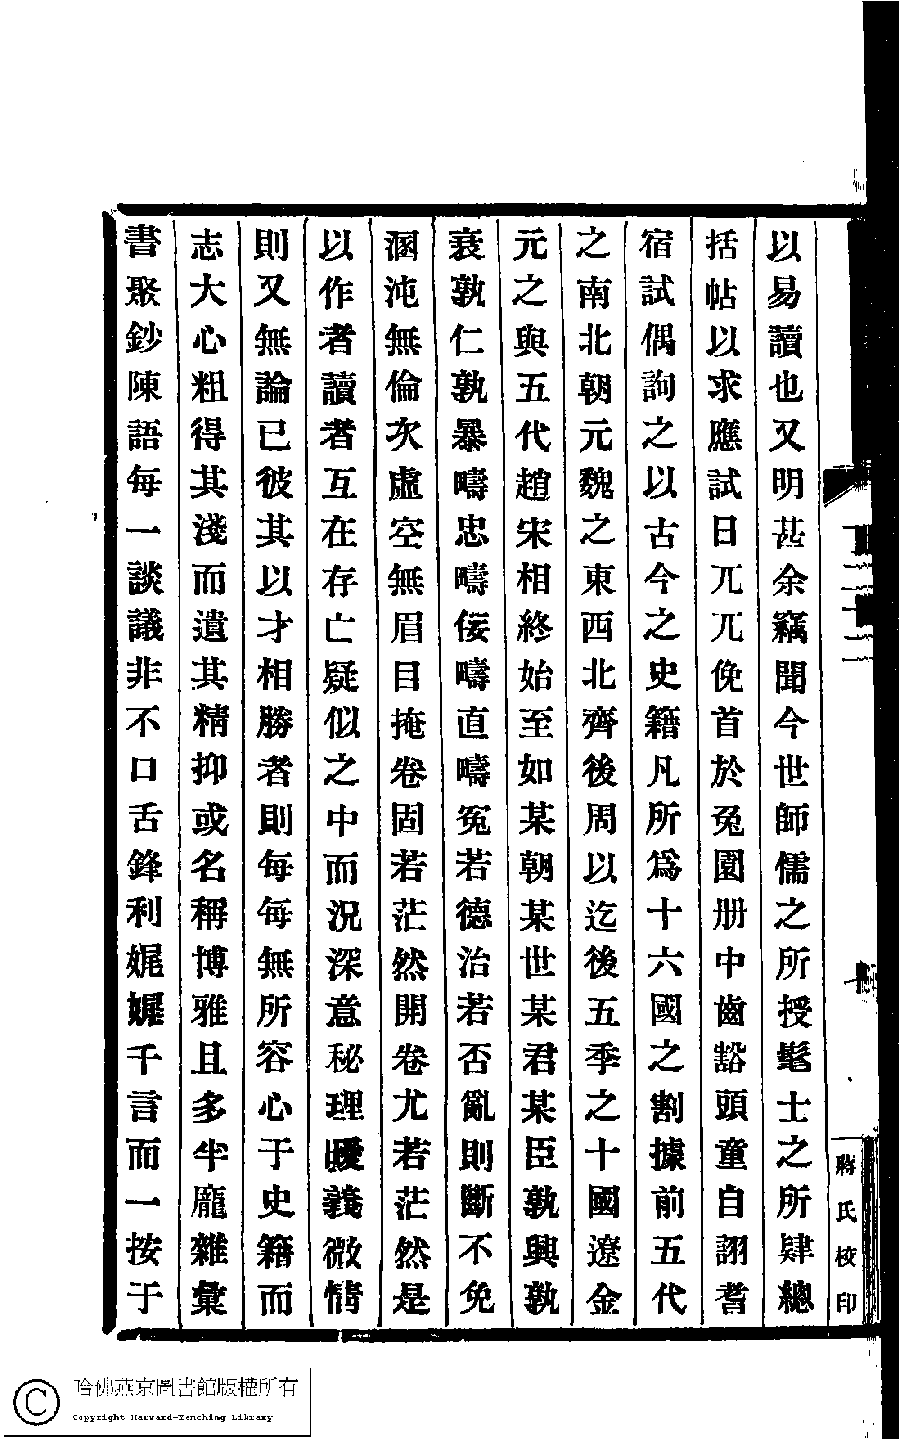 以易讀也又明甚余竊聞今世師儒之所授髦士之所肄總
括帖以求應試日兀兀俛首於兔園册中齒豁頭童自詡耆
宿試偶詢之以古今之史籍凡所爲十六國之割據前五代
之南北朝元魏之東西北齊後周以迄後五季之十國遼金
元之與五代趙宋相終始至如某朝某世某君某臣孰興孰
衰孰仁孰暴疇忠疇佞疇直疇寃若德治若否亂則斷不免
溷沌無倫次虛空無眉目掩卷固若茫然開卷尤若茫然是
以作者讀者互在存亡疑似之中而況深意秘理曖義微情
則又無論已彼其以才相勝者則每每無所容心于史籍而
志大心粗得其淺而遺其精抑或名稱博雅且多半龐雜彙
書聚鈔陳語每一談議非不口舌鋒利娓娓千言而一按于
蔣氏校印
哈佛燕京圖書館版權所有
Copyright Harvard-Yenching Library